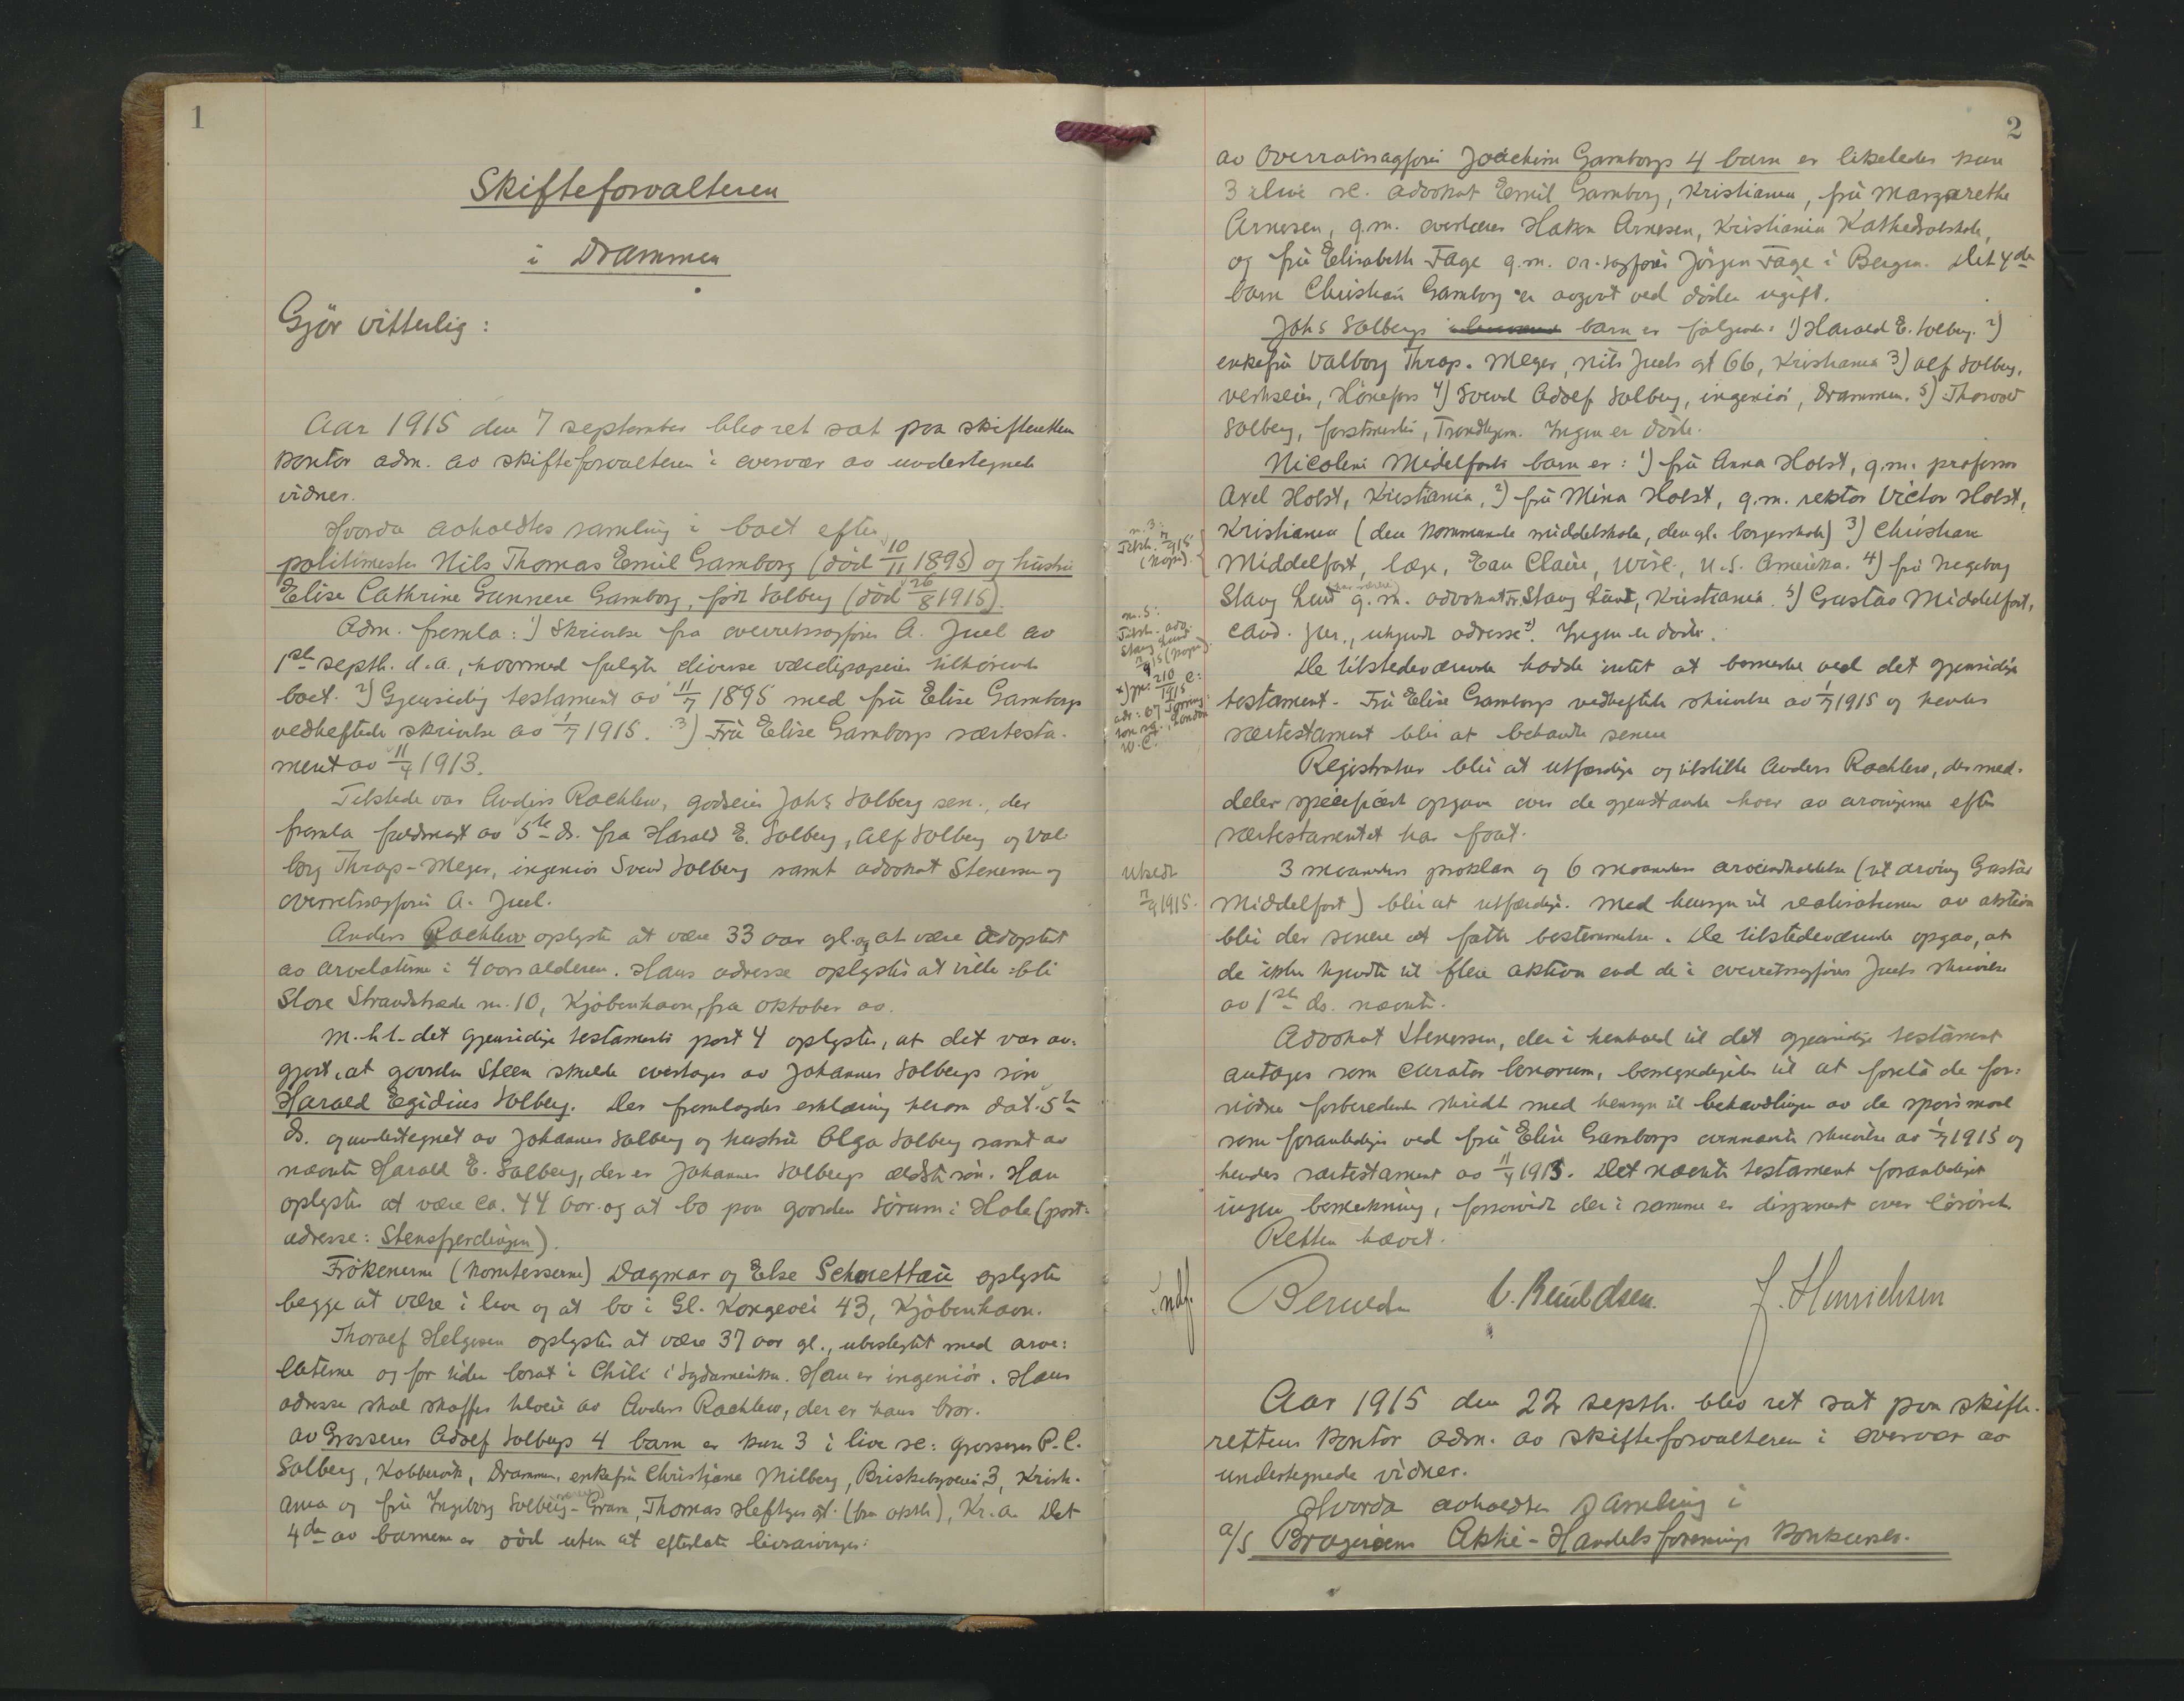 1
Skifteforvalteren
i Drammen
Gjör vitterlig:
Aar 1915 den 7 september blev ret sat paa skifterettens
kontor adm. av skifteforvalteren i overvær av undertegnede
vidner.
Hvorda avholdtes samling i boet efter
politimester Nils Thomas Emil Gamborg (död 10/11 1895) og hustru
Elise Cathrine Gunnere Gamborg, född Solberg (död 26/8 1915).
Adm. fremla: 1) Skrivelse fra overretssagförer A. Juel av
1ste septbr. d.a., hvormed fulgte diverse værdipapirer tilhörende
boet. 2) Gjensidig testament av 11/7 1895 med fru Elise Gamborgs
vedheftede skrivelse av 1/7 1915. 3) Fru Elise Gamborgs særtesta-
ment av 11/4 1913.
Tilstede var Anders Rachlew, godseier Johs Solberg sen., der
fremla fuldmagt av 5te ds. fra Harald E. Solberg, Alf Solberg og Val-
borg Thrap-Meyer, ingeniör Svend Solberg samt advokat Stenersen og
overretssagförer A. Juel.
Anders Rachlew oplyste at være 33 aar gl. og at være adoptert
av arvelaterne i 4 aars alderen. Hans adresse oplystes at ville bli
Store Strandstræde nr. 10, Kjöbenhavn, fra oktober av.
M.h.t. det gjensidige testaments post 4 oplystes, at det var av-
gjort, at gaarden Steen skulde overtages av Johannes Solbergs sön
Harald Egidius Solberg. Der fremlagdes erklæring herom dat. 5te
ds. og undertegnet av Johannes Solberg og hustru Olga Solberg samt av
nævnte Harald E. Solberg, der er Johannes Solbergs ældste sön. Han
oplystes at være ca. 44 aar og at bo paa gaarden Sörum i Hole (post-
adresse: Stensfjerdingen).
Frökenerne (komtesserne) Dagmar og Else Schmettau oplystes
begge at være i live og at bo i Gl. Kongevei 43, Kjöbenhavn.
Thoralf Helgesen oplystes at være 37 aar gl., ubeslegtet med arve-
laterne og for tiden bosat i Chili i Sydamerika. Han er ingeniör. Hans
adresse skal skaffes tilveie av Anders Rachlew, der er hans bror.
Av Grosserer Adolf Solbergs 4 barn er kun 3 i live se: grosserer P. C.
Solberg, Kobbervik, Drammen, enkefru Christiane Milberg, Briskebyveien 3, Kristi-
ania og fru Ingeborg Solberg-Gram, Thomas Heftyes gt. (fra oktbr), Kr.a. Det
4de av barnene er död uten at efterlate livsarvinger.
2
av Overretssagförer Joachim Gamborgs 4 barn er likeledes kun
3 i live se. advokat Emil Gamborg, Kristiania, fru Margarethe
Arnesen, g.m. overlærer Hakon Arnesen, Kristiania Kathedralskole,
og fru Elisabeth Fage g.m. or.sagförer Jörgen Fage i Bergen. Det 4de
barn Christian Gamborg er avgaat ved döden ugift.
Johs Solbergs barn er fölgende: 1) Harald E. Solberg. 2)
enkefru Valborg Thrap-Meyer, Nils Juels gt 66, Kristiania 3) Alf Solberg,
verkseier, Hönefoss 4) Svend Adolf Solberg, ingeniör, Drammen. 5) Thorvald
Solberg, forstmester, Trondhjem. Ingen er döde.
Nicoline Midelforts barn er: 1) fru Anna Holst, g.m. professor
Axel Holst, Kristiania, 2) fru Mina Holst, g.m. rektor Victor Holst,
Kristiania (den kommunale middelskole, den gl. borgerskole) 3) Christian
Middelfort, læge, Eau Claire, Wisc., U.S. Amerika. 4) fru Ingeborg
Stang Lund g.m. advokat Fr. Stang Lund, Kristiania. 5) Gustav Middelfort,
cand. jur., ukjendt adresse x). Ingen er döde.
De tilstedeværende hadde intet at bemerke ved det gjensidige
testament. Fru Elise Gamborgs vedheftede skrivelse av 1/7 1915 og hendes
særtestament blir at behandle senere
Registratur blir at utfærdige og utstille Anders Rachlew, der med-
deler specificert opgave over de gjenstande hver av arvingerne efter
særtestamentet har faat.
3 maaneders proklama og 6 maaneders arveindkaldelse (til arving Gustav
Middelfort) blir at utfærdige. Med hensyn til realisationen av aktier
blir der senere at fatte bestemmelse. De tilstedeværende opgav, at
de ikke kjendte til flere aktiva end de i overretssagförer Juels skrivelse
av 1ste ds. nævnte.
Advokat Stenersen, der i henhold til det gjensidige testament
antages som curator bonorum, bemyndigedes til at foreta de for-
nödne forberedende skridt med hensyn til behandlingen av de spörsmaal
som foranlediges ved fru Elise Gamborgs ovennævnte skrivelse av 1/7 1915 og
hendes særtestament av 11/4 1913. Det nævnte testament foranlediget
ingen bemerkning, forsaavidt der i samme er disponert over lösöret.
Retten hævet.
C. Reinldsen. J. Henrichsen
Aar 1915 den 22 septbr. blev ret sat paa skifte-
rettens kontor adm. av skifteforvalteren i overvær av
undertegnede vidner.
Hvorda avholdtes samling i
A/S Brageröens Aktie-Handelsforenings konkursbo.
nr. 3:
(kopi).
nr. 5:
Stang Lund
London
W.C.
utsedt
7/9 1915.